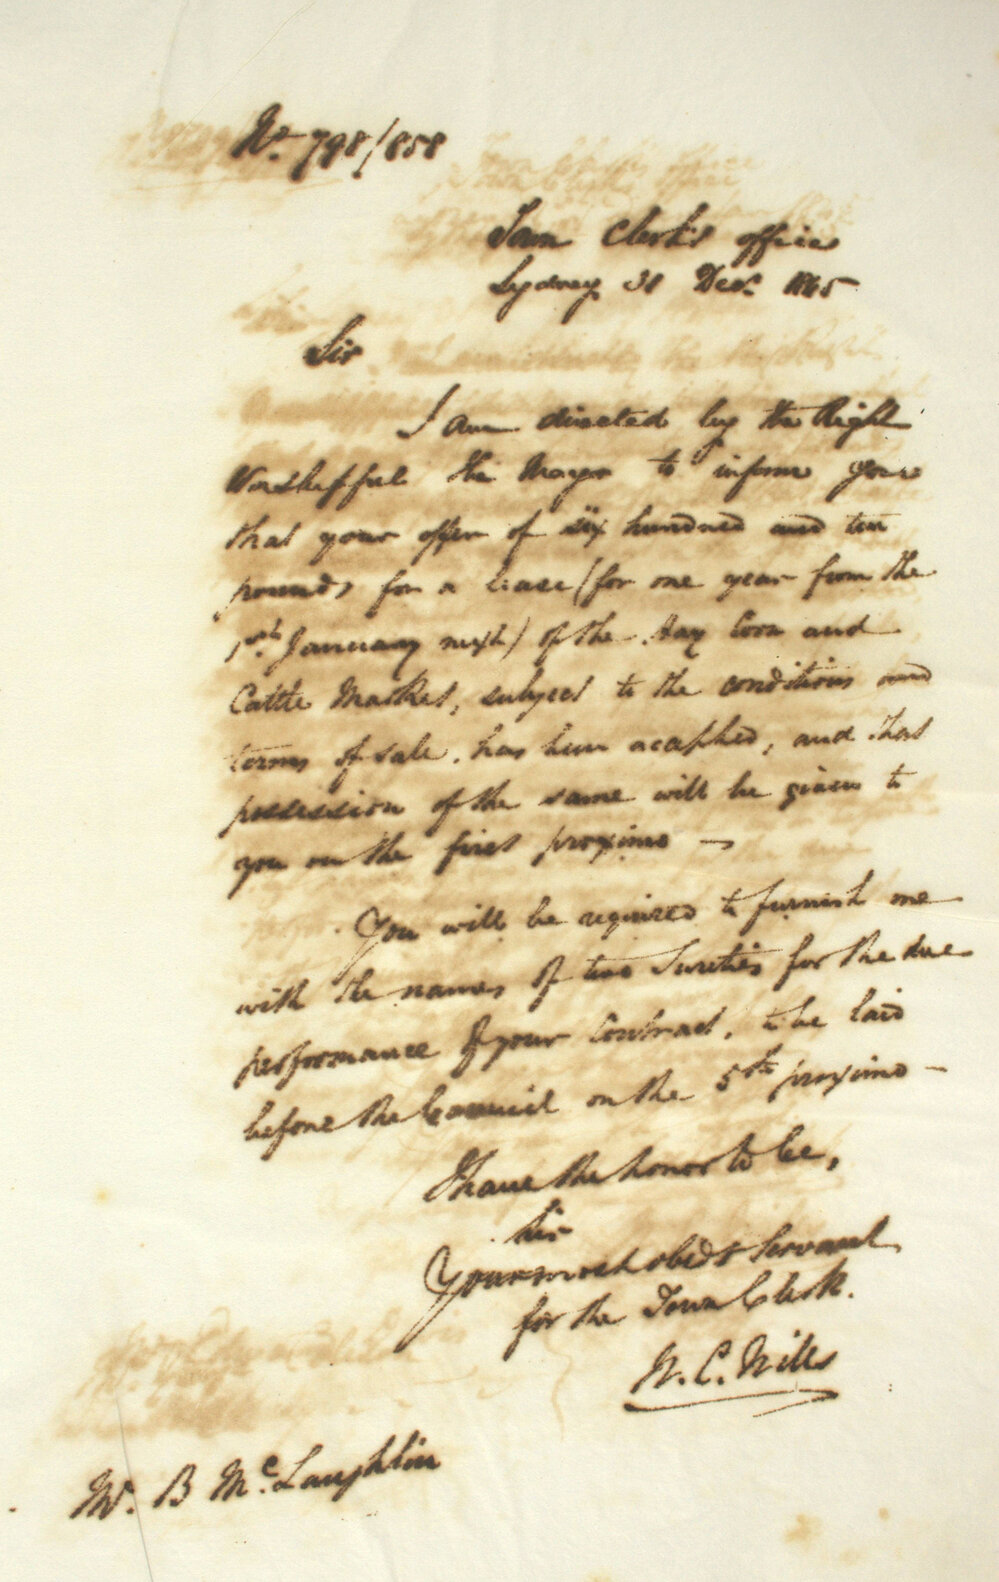 No. 798/858
Town Clerk's office
Sydney 31 Decr. 1865
Sir
I am directed by the Right
Worshipful the Mayor to inform you
that your offer of six hundred and ten
pounds for a lease (for one year from the
1st January next) of the Hay Corn and
Cattle Market, subject to the conditions and
terms of sale, has been accepted, and that
possession of the same will be given to
you on the first proximo —
You will be required to furnish me
with the names of two Sureties for the due
performance of your Contract, to be laid
before the Council on the 5th proximo —
I have the honor to be,
Sir
Your most obedt Servant
for the Town Clerk.
W. C. Wills
Mr. B McLaughlin